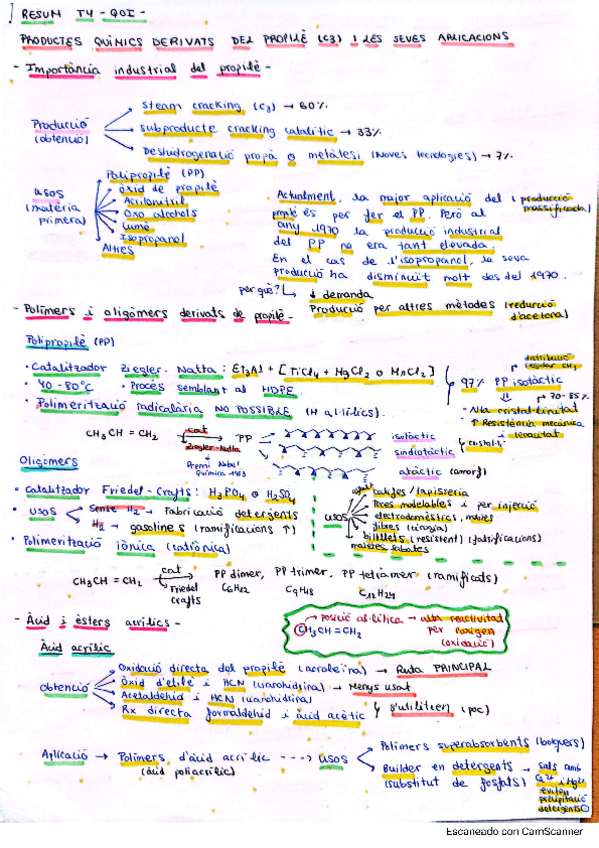 RESUM T4 - QOI -
PRODUCTES QUÍMICS DERIVATS DEL PROPILÈ (C3) I LES SEVES APLICACIONS
- Importància industrial del propilè -
Producció (obtenció)
steam cracking (C3) → 60%
subproducte cracking catalític → 33%
Deshidrogenació propà o metàtesi (Noves tecnologies) → 7%
USOS (matèria primera)
Polipropilè (PP)
òxid de propilè
Acrilonitril
Oxo alcohols
Cumè
Isopropanol
Altres
Actualment, la major aplicació del (producció massificada)
propilè és per fer el PP. Però al
any 1970 la producció industrial
del PP no era tant elevada.
En el cas de l'isopropanol, la seva
producció ha disminuït molt des del 1970.
per què? ↓ demanda
Produció per altres mètodes (reducció d'acetona)
- Polímers i oligòmers derivats de propilè -
Polipropilè (PP)
· Catalitzador Ziegler-Natta: Et3Al + [TiCl4 + MgCl2 o MnCl2]
· 40-80°C · Procés semblant al HDPE
· Polimerització radicalària NO POSSIBLE (H al·lílics).
97% PP isotàctic
distribució regular CH3
70-85%
- Alta cristal·linitat
↑ Resistència mecànica
↓ tenacitat
CH3CH = CH2 cat Ziegler-Natta → PP
Premi Nobel Química 1963
isotàctic
sindiotàctic
cristal·lí
atàctic (amorf)
Oligòmers
· Catalitzador Friedel-Crafts: H3PO4 o H2SO4
· USOS
Sense H2 → Fabricació detergents
H2 → gasolines (ramificacions ↑)
· Polimerització iònica (catiònica)
USOS
catifes / tapisseria
Peces modelables i per injecció
electrodomèstics, mobles
fibres (cirurgia)
bitllets (resistent) (falsificacions)
maletes, sabates
CH3CH = CH2 cat Friedel crafts → PP dimer, PP trimer, PP tetràmer (ramificats)
C6H12 C9H18 C12H24
- Àcid i èsters acrílics -
posició al·lílica → alta reactivitat per l'oxigen (oxidació)
CH3CH = CH2
Àcid acrílic
Obtenció
Oxidació directa del propilè (acroleïna) → Ruta PRINCIPAL
Òxid d'etilè i HCN (cianohidrina) → Menys usat
Acetaldehid i HCN (cianohidrina)
Rx directa formaldehid i àcid acètic
s'utilitzen (poc)
Aplicació → Polímers d'àcid acrílic ---> USOS
(àcid poliacrílic)
Polímers superabsorbents (bolquers)
Builder en detergents → sals amb
(substitut de fosfats)
Ca2+ i Mg2+
eviten
precipitació
detergents
Escaneado con CamScanner